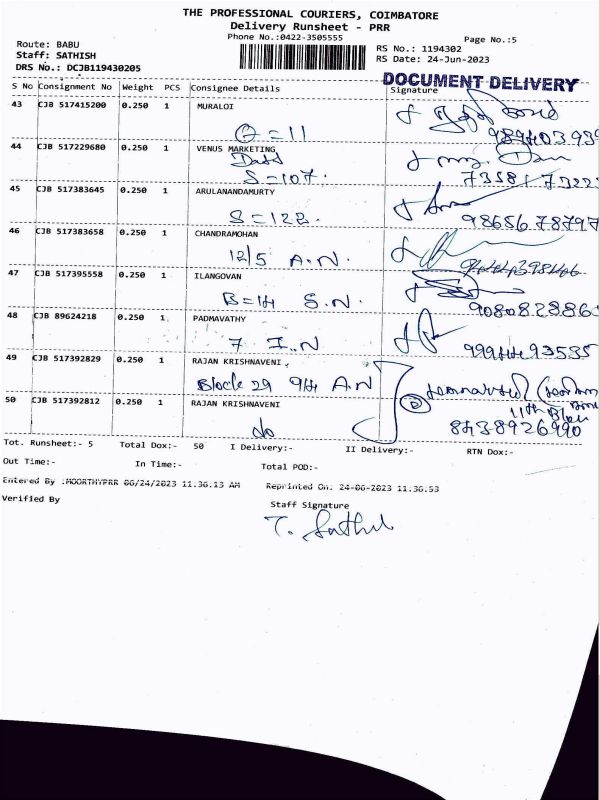 THE PROFESSIONAL COURIERS, COIMBATORE
Delivery Runsheet - PRR
Phone No.:0422-3505555
Page No.:5
Route: BABU
Staff: SATHISH
DRS No.: DCJB119430205
RS No.: 1194302
RS Date: 24-Jun-2023
DOCUMENT DELIVERY
S No Consignment No Weight PCS Consignee Details Signature
43 CJB 517415200 0.250 1 MURALOI
= 11
44 CJB 517229680 0.250 1 VENUS MARKETING
S=107.
45 CJB 517383645 0.250 1 ARULANANDAMURTY
98656 78797
46 CJB 517383658 0.250 1 CHANDRAMOHAN
12/5 A.N.
47 CJB 517395558 0.250 1 ILANGOVAN
B=14 S.N.
48 CJB 89624218 0.250 1 PADMAVATHY
7 I.N
9994493535
49 CJB 517392829 0.250 1 RAJAN KRISHNAVENI
Block 29 9H A.N
50 CJB 517392812 0.250 1 RAJAN KRISHNAVENI
11th
do
8438926990
Tot. Runsheet:- 5 Total Dox:- 50 I Delivery:- II Delivery:- RTN Dox:-
Out Time:- In Time:- Total POD:-
Entered By :MOORTHYPRR 06/24/2023 11.36.13 AM Reprinted On: 24-06-2023 11.36.53
Verified By
Staff Signature
T. Sathish